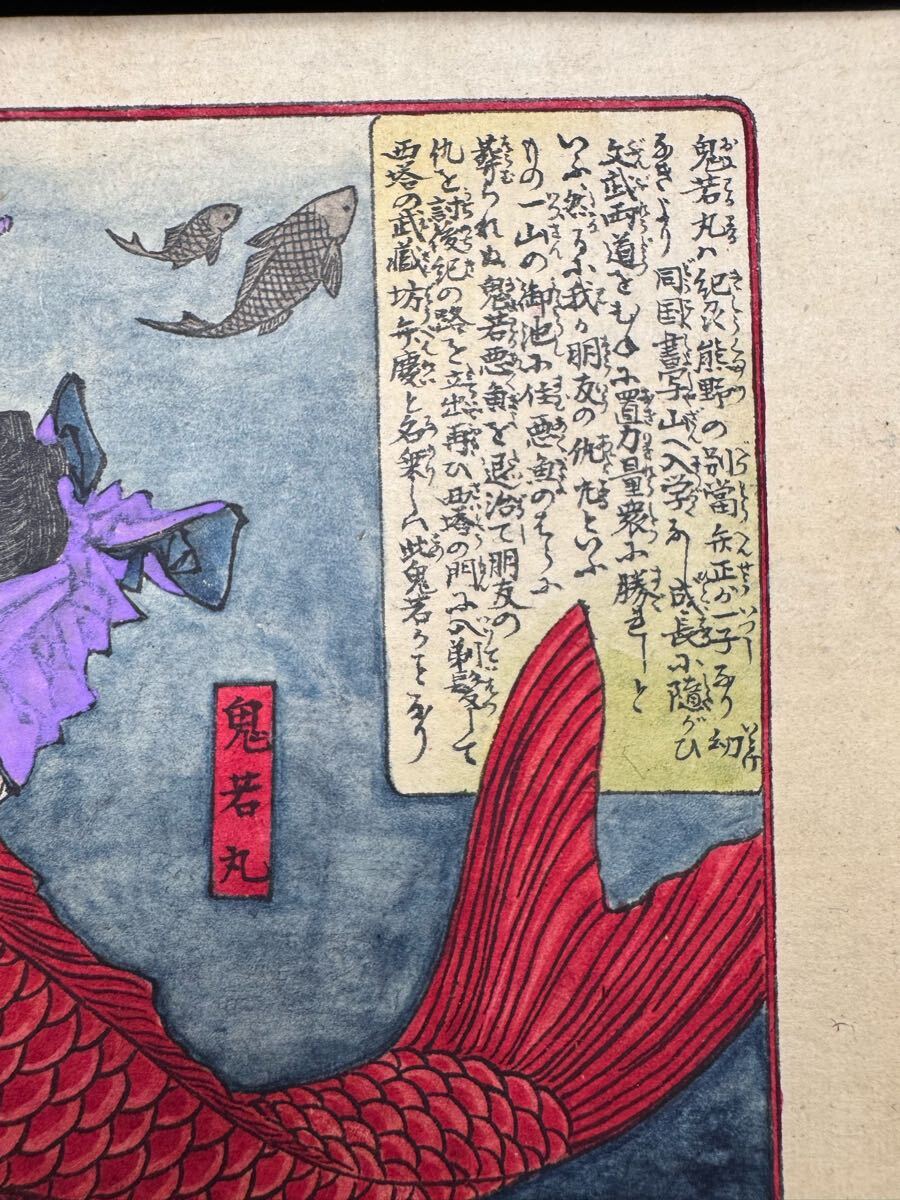 鬼若丸ハ紀刕熊野の別當弁正が一子なり幼
なきより同国書写山へ入学なし成長に随がひ
文武両道をむねに置力量衆に勝れしと
いふ然るに我が朋友の仇
の一山の御池に住悪魚のはらに
葬られぬ鬼若悪魚を退治て朋友の
仇を討後紀の路を立出再ひ西塔の門に入剃髪して
西塔の武蔵坊弁慶と名乗しハ此鬼若がことなり
鬼若丸